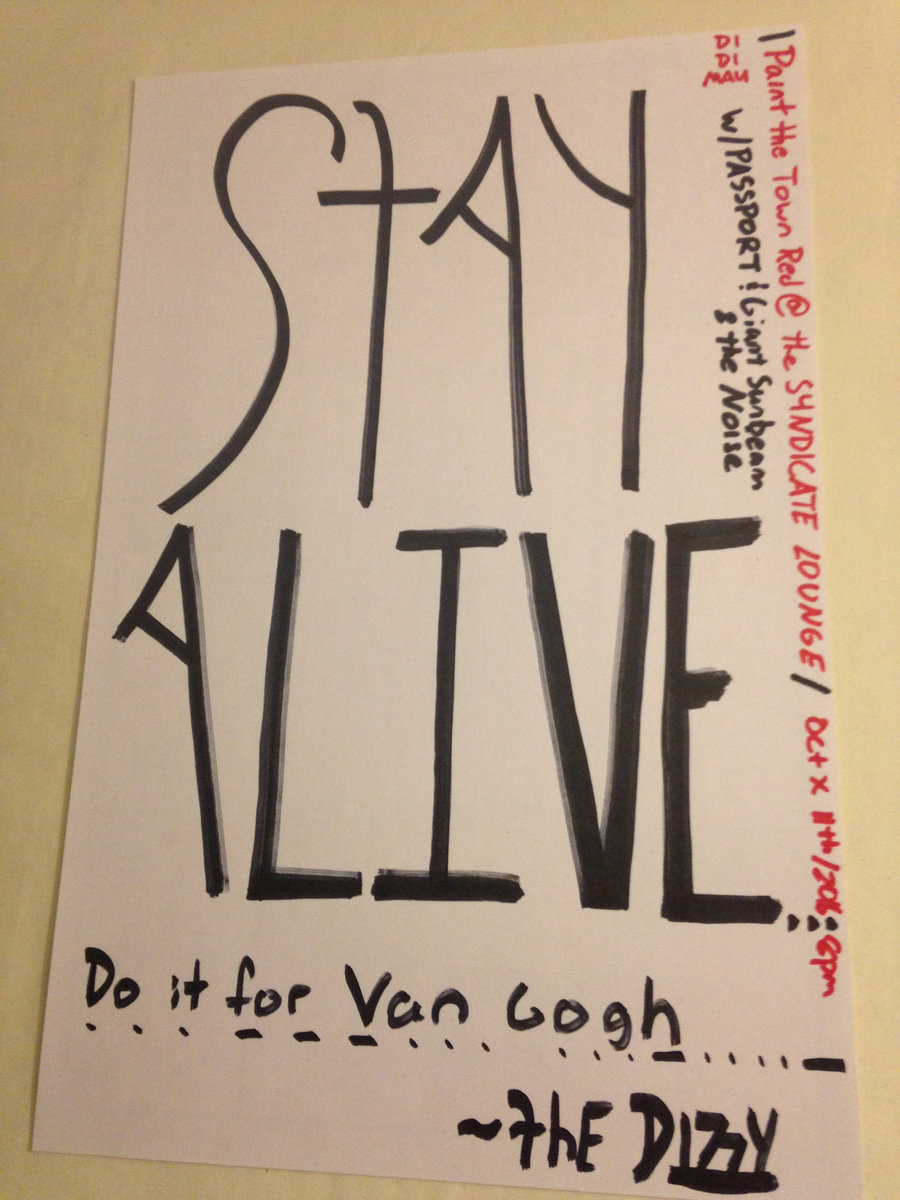 STAY
ALIVE...
Do it for Van Gogh
~thE DIZZY
| Paint the Town Red @ the SYNDICATE LOUNGE / Oct x 11th/2016 6pm
W/PASSPORT & Giant Sunbeam
& the Noise